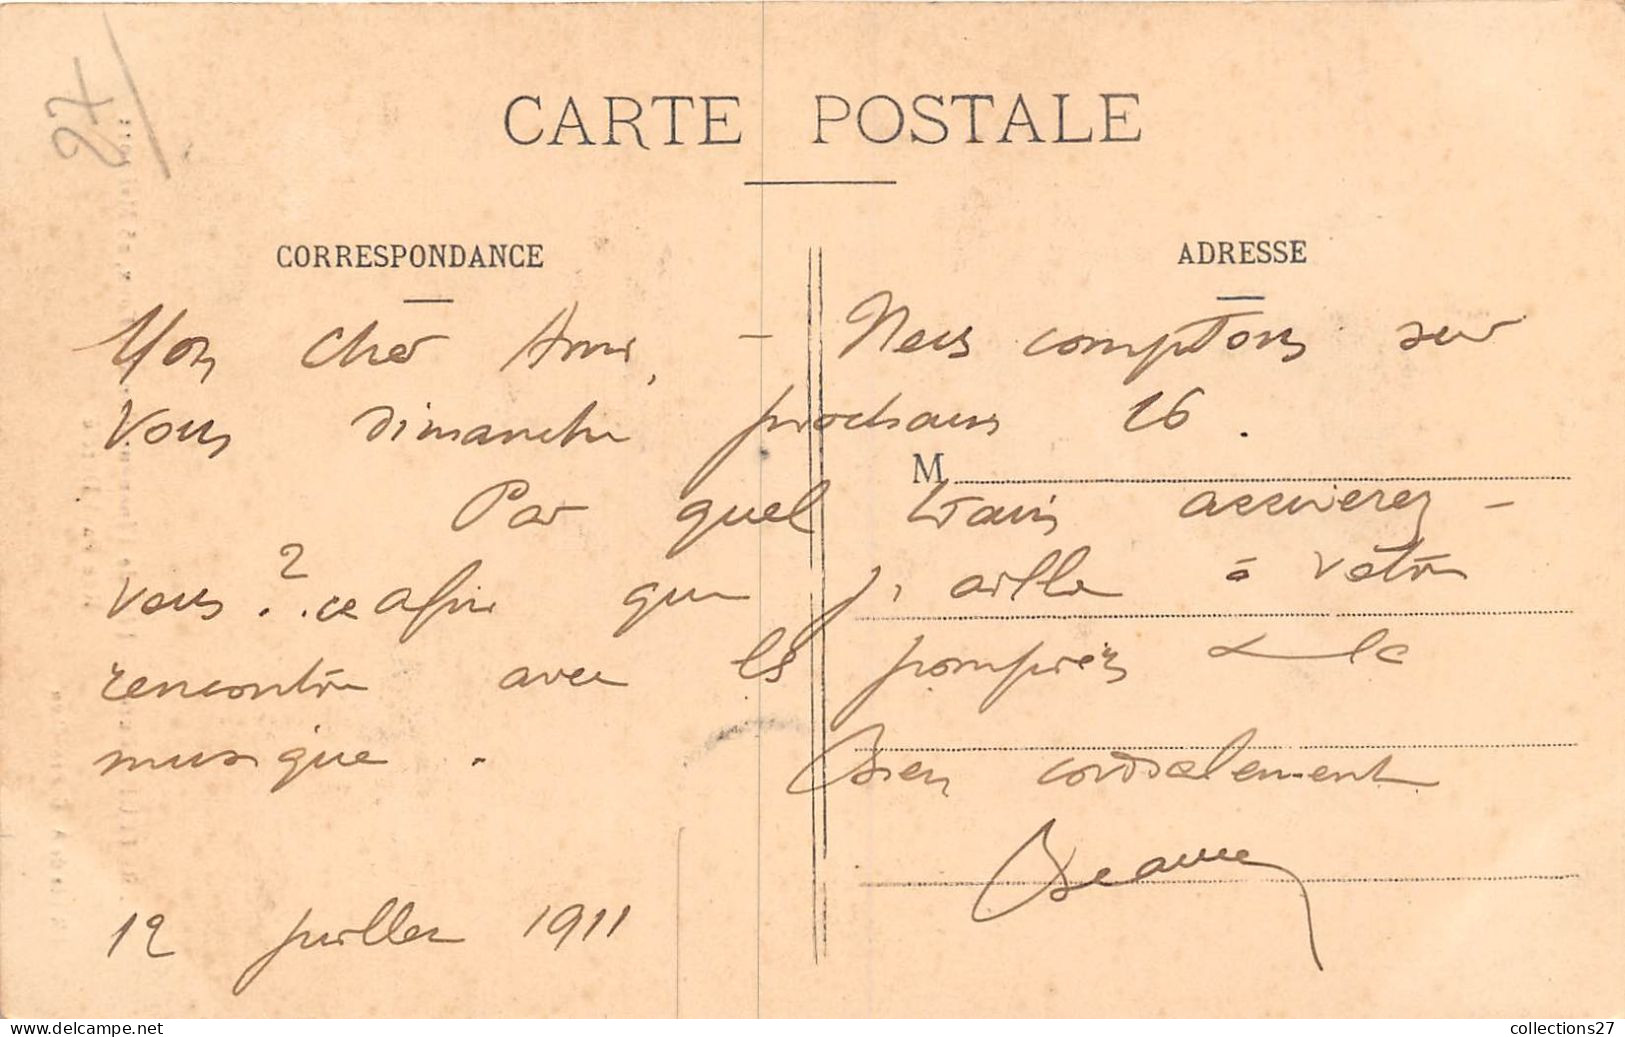 27
CARTE POSTALE
CORRESPONDANCE
ADRESSE
Mon cher Ami, – Nous comptons sur
vous dimanche prochain 16.
M
Par quel train arriverez-
vous? ce afin que j'aille à votre
rencontre avec les pompiers & la
musique.
Bien cordialement
12 juillet 1911
collections27